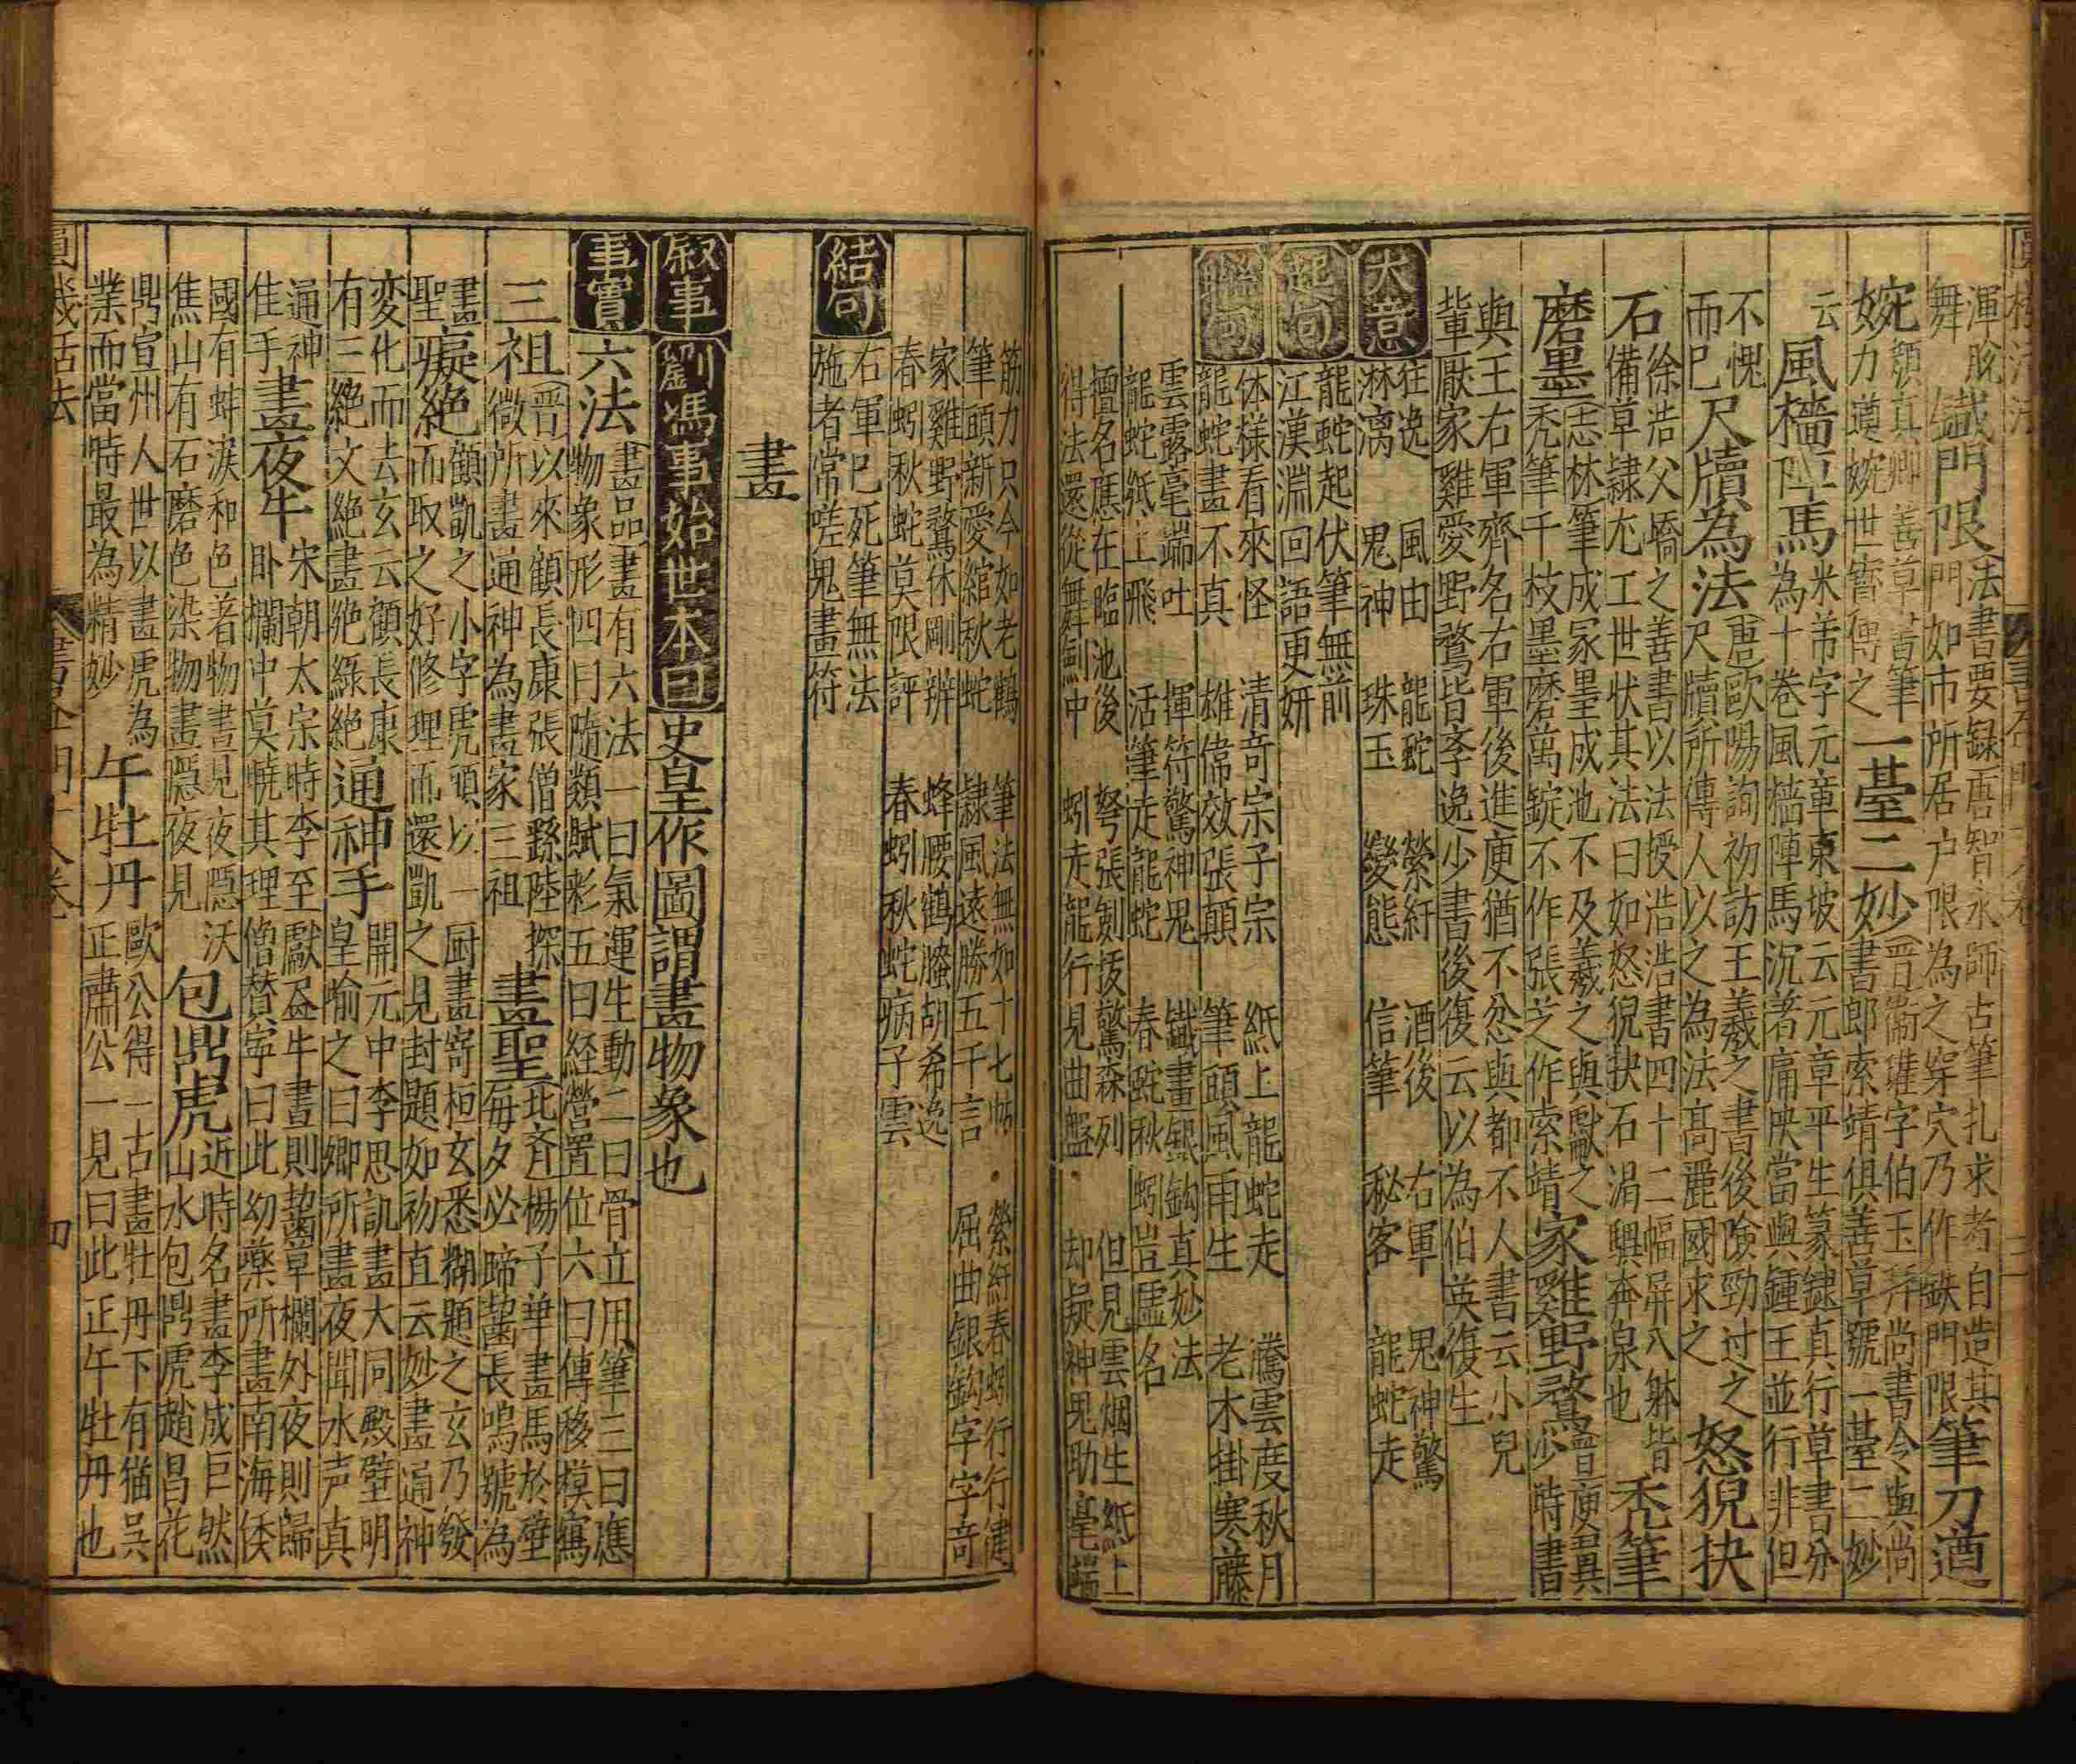 渾脫舞 鐵門限 法書要録唐智永師占筆扎求者自造其門如市所居户限為之穿穴乃作鉄門限 筆力遒
婉 顔真卿善草書筆力遒婉世寶傳之 一臺二妙 晋衛瓘字伯玉并尚書令與尚書郎索靖俱善草號一臺二妙
云 風檣陣馬 米芾字元章東坡云元章平生篆隷真行草書分為十巻風檣陣馬沉著痛快當與鍾王並行非但
不愧而已 尺牘為法 唐歐陽詢初訪王羲之書後險勁过之尺牘所傳人以之為法髙麗國求之 怒猊抉
石 徐浩父嶠之善書以法授浩浩書四十二幅屏八躰皆備草隷尤工世状其法曰如怒猊抉石渴驥奔泉也 秃筆
磨墨 志林筆成冢墨成池不及羲之與獻之秃筆千枝墨磨萬錠不作張芝作索靖 家雞野鶩 晉庾翼少時書
與王右軍齊名右軍後進庾猶不忿與都下人書云小兒軰厭家雞愛野鶩皆李逸少書後復云以為伯英復生
大意 狂逸 風由 龍蛇 縈紆 酒後 右軍 鬼神驚
淋漓 鬼神 珠玉 變態 信筆 秘客 龍蛇走
起句 龍蛇起伏筆無前
江漢淵回語更妍
聯句 体様看來怪 清竒宗子宗 紙上龍蛇走 騰雲度秋月
龍蛇畫不真 雄偉效張顛 筆頭風雨生 老木掛寒藤
雲露毫端吐 揮符驚神鬼 鐵畫銀鈎真妙法
龍蛇紙上飛 活筆走龍蛇 春蛇秋蚓豈虚名
擅名應在臨池後 弩張劍拔驚森列 但見雲烟生紙上
得法還從舞劍中 蚓走龍行見曲盤 却疑神鬼助毫端
筋力只今如老鶴 筆法無如十七帖 縈紆春蚓行行健
筆頭新愛綰秋蛇 隷風遠勝五千言 屈曲銀鈎字字竒
家雞野鶩休剛辨 蜂腰鶴膝胡希逸
春蚓秋蛇莫限評 春蚓秋蛇病子雲
結句 右軍已死筆無法
施者常嗟鬼畫符
畫
叙事 劉馮事始世本曰 史皇作圖謂畫物象也
事實 六法 畫品畫有六法一曰氣運生動二曰骨立用筆三曰應物象形四曰隨類賦彩五曰経營置位六曰傳移模寫
三祖 晋以來顧長康張僧繇陸探微所畫通神為畫家三祖 畫聖 北斉楊子華畫馬於壁每夕必蹄齧長鳴號為
畫聖 癡絶 顧凱之小字虎頭以一厨畫寄桓玄悉糊題之玄乃發而取之好修理而還凱之見封題如初直云妙畫通神
変化而去玄云顧長康有三絶文絶畫絶絶 通神手 開元中李思訓畫大同殿壁明皇喻之曰卿所畫夜聞水声真
通神隹手 畫夜牛 宋朝太宗時李至獻画牛晝則齧草欄外夜則歸卧欄中莫曉其理僧賛寜曰此幼藥所畫南海倭
國有蚌淚和色著物晝見夜隠沃焦山有石磨色染物晝隠夜見 包鼎虎 近時名畫李成巨然山水包鼎虎趙昌花
鼎宣州人世以畫虎為業而當時最為精妙 午牡丹 歐公得一古畫牡丹下有猫吳正肅公一見曰此正午牡丹也
圓機活法
四